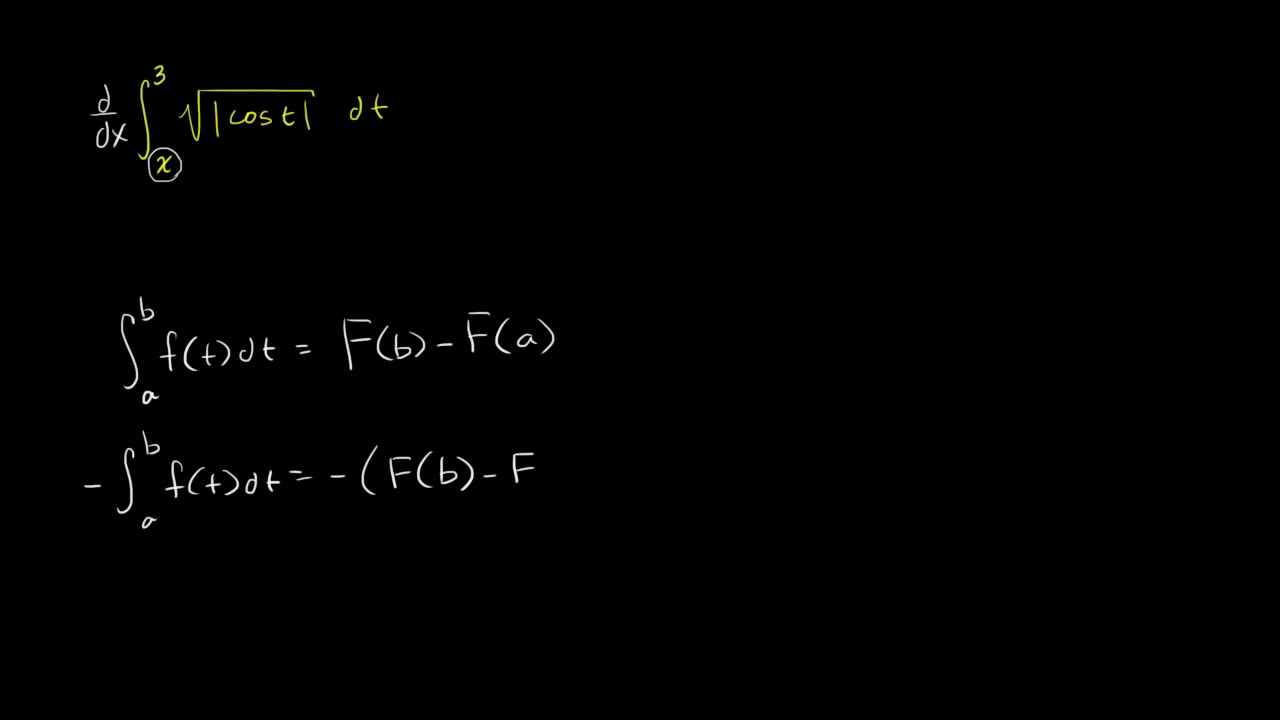 d/dx ∫_x^3 √|cos t| dt
∫_a^b f(t)dt = F(b) - F(a)
- ∫_a^b f(t)dt = - (F(b) - F